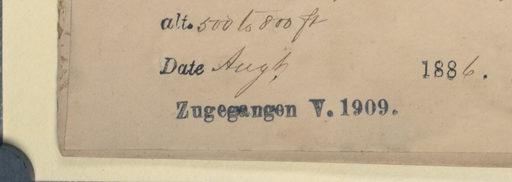 alt. 500 to 800 ft
Date Augt, 1886.
Zugegangen V. 1909.